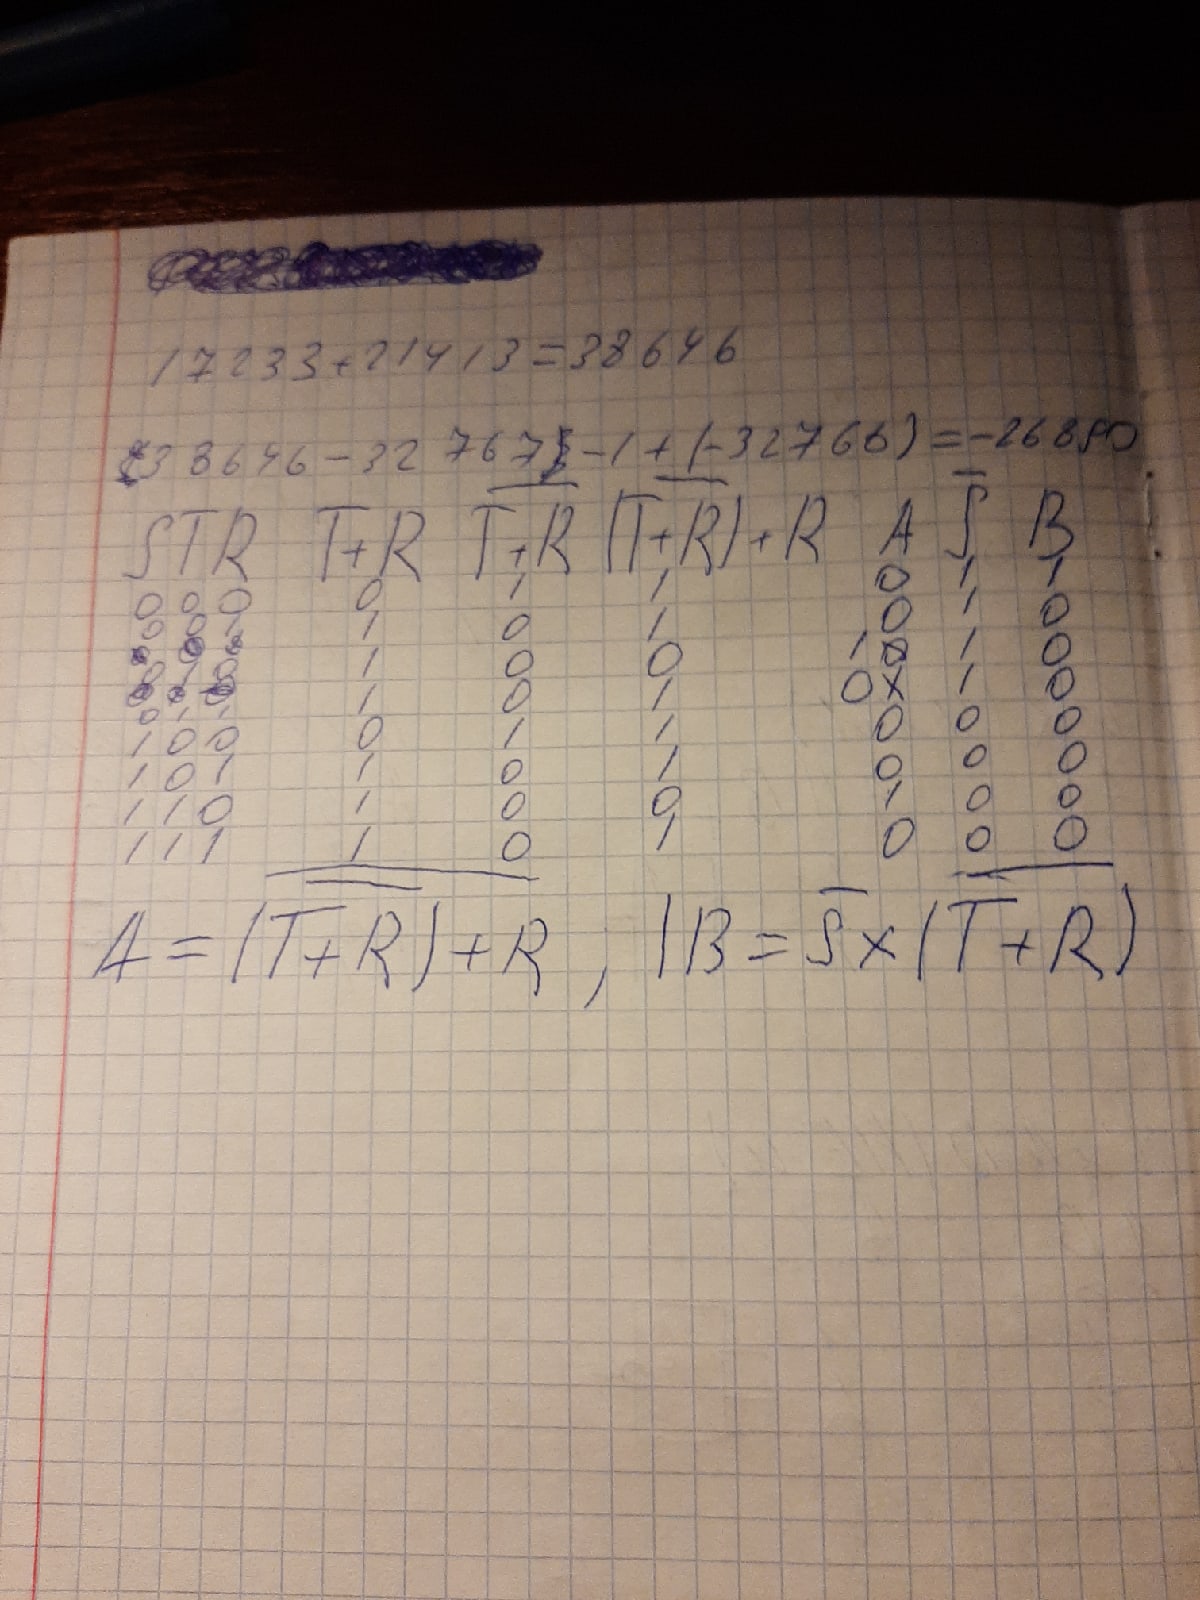 17233+21413=38646
38646-32767-1+(-32766)=-26880
STR T+R T+R (T+R)+R A S B
0 0 0 0 1 1 0 1 1
0 0 1 1 0 1 0 1 0
0 1 0 1 0 0 1 1 0
0 1 1 1 0 1 0 1 0
1 0 0 0 1 1 0 0 0
1 0 1 1 0 1 0 0 0
1 1 0 1 0 0 1 0 0
1 1 1 1 0 1 0 0 0
A=(T+R)+R, B=S×(T+R)